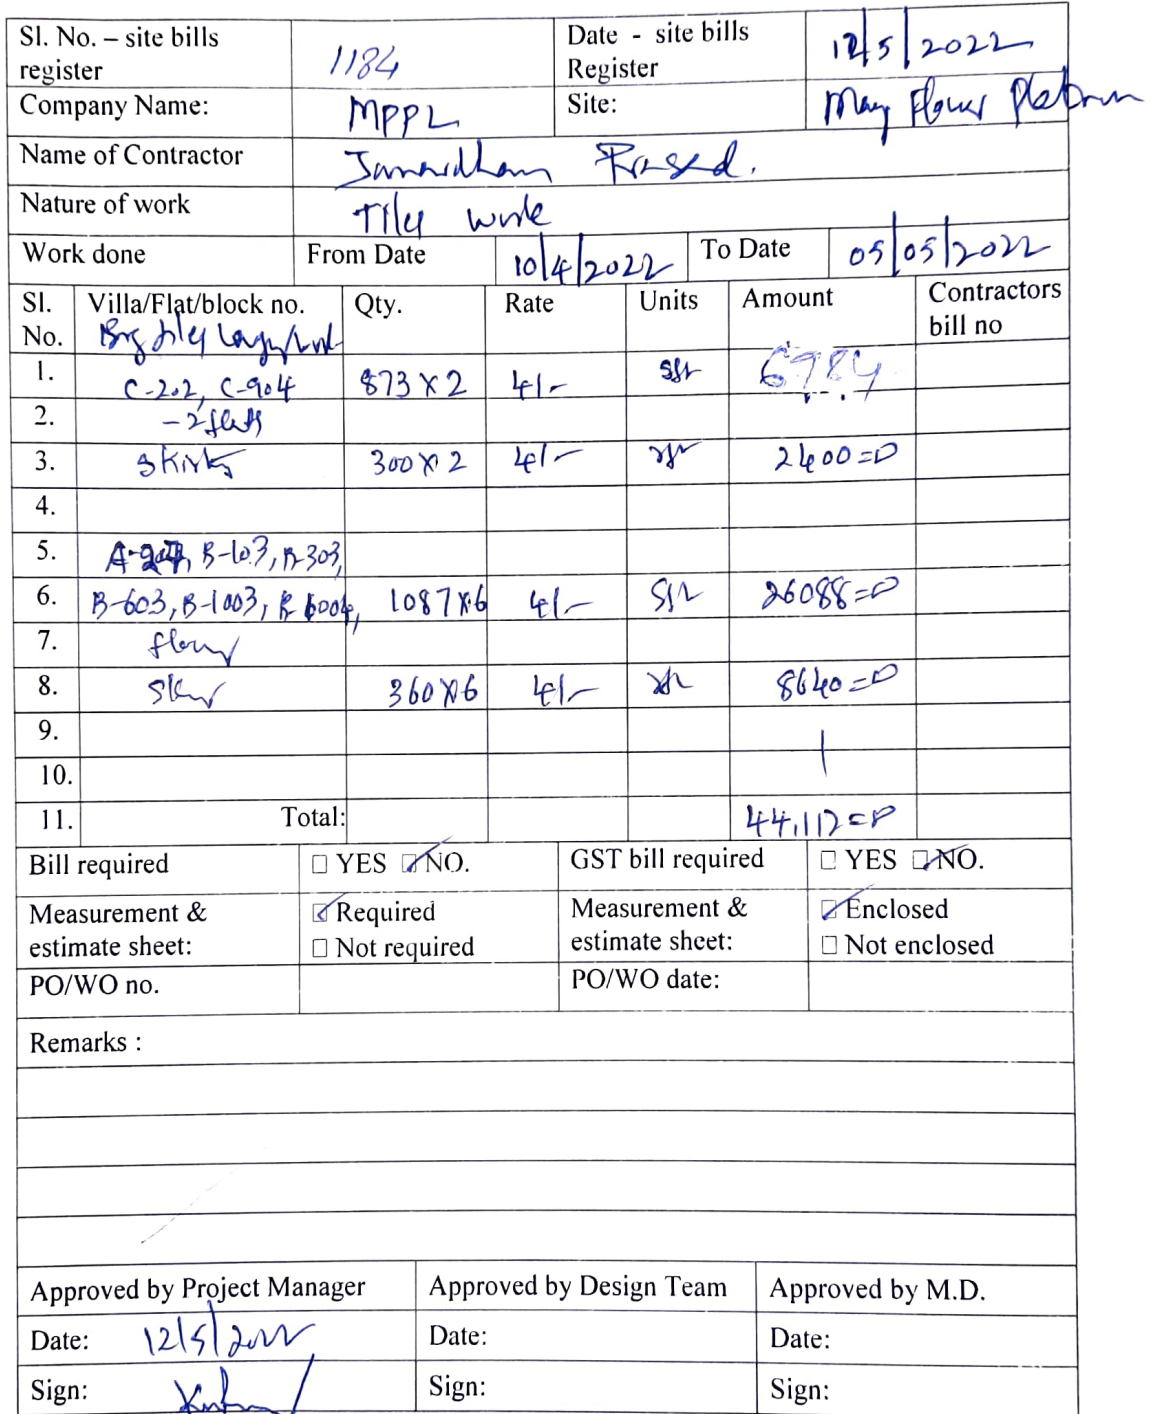 Sl. No. – site bills register 1184 Date - site bills Register 12/5/2022
Company Name: MPPL Site: May Flower Platinum
Name of Contractor Janardhan Prasad.
Nature of work Tiles work
Work done From Date 10/4/2022 To Date 05/05/2022
Sl. No. Villa/Flat/block no. Qty. Rate Units Amount Contractors bill no
Big tiles
1. C-202, C-904 873 x 2 4/- sft 6984
2. - 2 flats
3. 300 x 2 4/- sft 2400=0
4.
5. B-103, B-303,
6. B-603, B-1003, 1087 x 6 4/- sft 26088=0
7.
8. 360 x 6 4/- sft 8640=0
9.
10.
11. Total: 44,112=0
Bill required ☐ YES ☑ NO. GST bill required ☐ YES ☑ NO.
Measurement & estimate sheet: ☑ Required Measurement & estimate sheet: ☑ Enclosed
☐ Not required ☐ Not enclosed
PO/WO no. PO/WO date:
Remarks :
Approved by Project Manager Approved by Design Team Approved by M.D.
Date: 12/5/2022 Date: Date:
Sign: Sign: Sign: